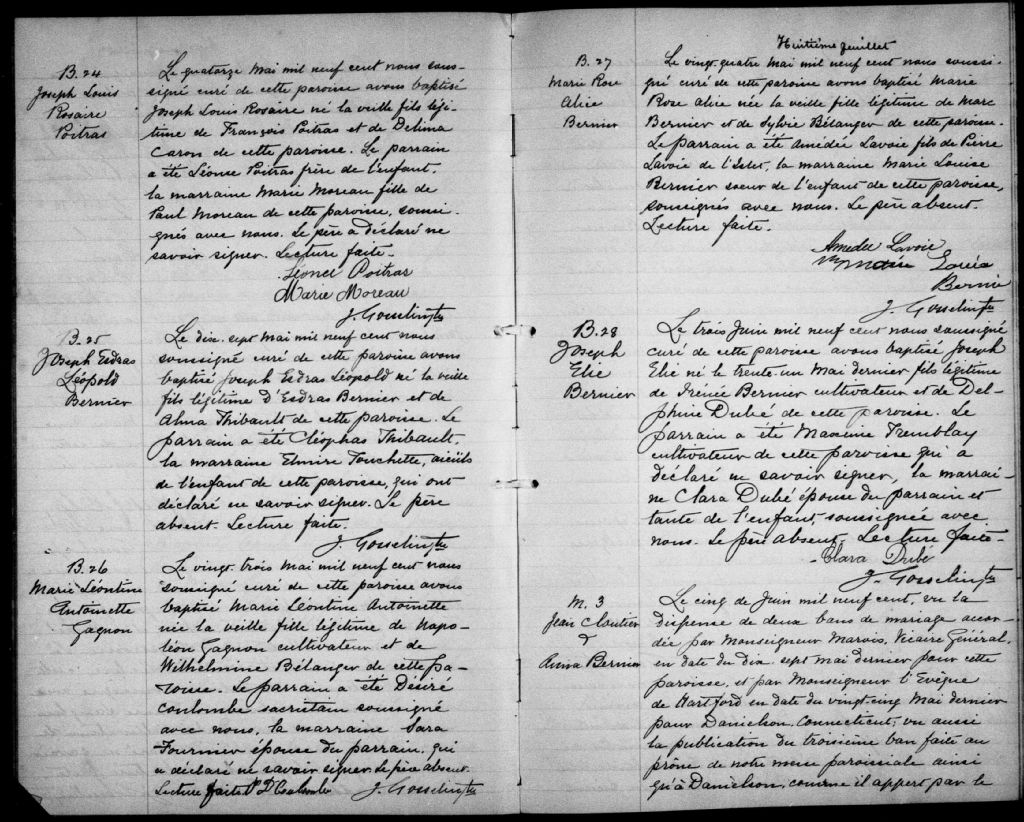 B.24
Joseph Louis
Rosaire
Poitras
Le quatorze Mai mil neuf cent nous sous-
signé curé de cette paroisse avons baptisé
Joseph Louis Rosaire né la veille fils légi-
time de François Poitras et de Delima
Caron de cette paroisse. Le parrain
a été Léonse Poitras frère de l'enfant,
la marraine Marie Moreau fille de
Paul Moreau de cette paroisse, soussi-
gnés avec nous. Le père a déclaré ne
savoir signer. Lecture faite.
Léonce Poitras
Marie Moreau
J. Gosselin, ptre
B.25
Joseph Esdras
Léopold
Bernier
Le dix-sept Mai mil neuf cent nous
soussigné curé de cette paroisse avons
baptisé Joseph Esdras Léopold né la veille
fils légitime d'Esdras Bernier et de
Alma Thibault de cette paroisse. Le
parrain a été Cléophas Thibault,
la marraine Elmire Touchette, aïeuls
de l'enfant de cette paroisse, qui ont
déclaré ne savoir signer. Le père
absent. Lecture faite.
J. Gosselin, ptre
B.26
Marie Léontine
Antoinette
Gagnon
Le vingt-trois Mai mil neuf cent nous
soussigné curé de cette paroisse avons
baptisé Marie Léontine Antoinette
née la veille fille légitime de Napo-
léon Gagnon cultivateur et de
Wilhelmine Bélanger de cette pa-
roisse. Le parrain a été Désiré
Coulombe sacristain soussigné
avec nous, la marraine Sara
Fournier épouse du parrain, qui
a déclaré ne savoir signer. Le père absent.
Lecture faite. D Coulombe J. Gosselin, ptre
Huitième feuillet
B.27
Marie Rose
Alice
Bernier
Le vingt-quatre Mai mil neuf cent nous soussi-
gné curé de cette paroisse avons baptisé Marie
Rose Alice née la veille fille légitime de Marc
Bernier et de Sylvie Bélanger de cette paroisse.
Le parrain a été Amedée Lavoie fils de Pierre
Lavoie de l'Islet, la marraine Marie Louise
Bernier soeur de l'enfant de cette paroisse,
soussignés avec nous. Le père absent.
Lecture faite.
Amedee Lavoie
Marie
Bernier
J. Gosselin, ptre
B.28
Joseph
Elie
Bernier
Le trois Juin mil neuf cent nous soussigné
curé de cette paroisse avons baptisé Joseph
Elie né le trente-un Mai dernier fils légitime
de Irénée Bernier cultivateur et de Del-
phine Dubé de cette paroisse. Le
parrain a été Maxime Tremblay
cultivateur de cette paroisse qui a
déclaré ne savoir signer, la marrai-
ne Clara Dubé épouse du parrain et
tante de l'enfant, soussignée avec
nous. Le père absent. Lecture faite-
Clara Dubé
J. Gosselin, ptre
M. 3
Jean Cloutier
&
Anna Bernier
Le cinq de Juin mil neuf cent, vu la
dispense de deux bans de mariage accor-
dée par Monseigneur Marois, Vicaire Général,
en date du dix-sept Mai dernier pour cette
paroisse, et par Monseigneur l'Evêque
de Hartford en date du vingt-cinq Mai dernier
pour Danielson, Connecticut, vu aussi
la publication du troisième ban faite au
prône de notre messe paroissiale ainsi
qu'à Danielson, comme il appert par le